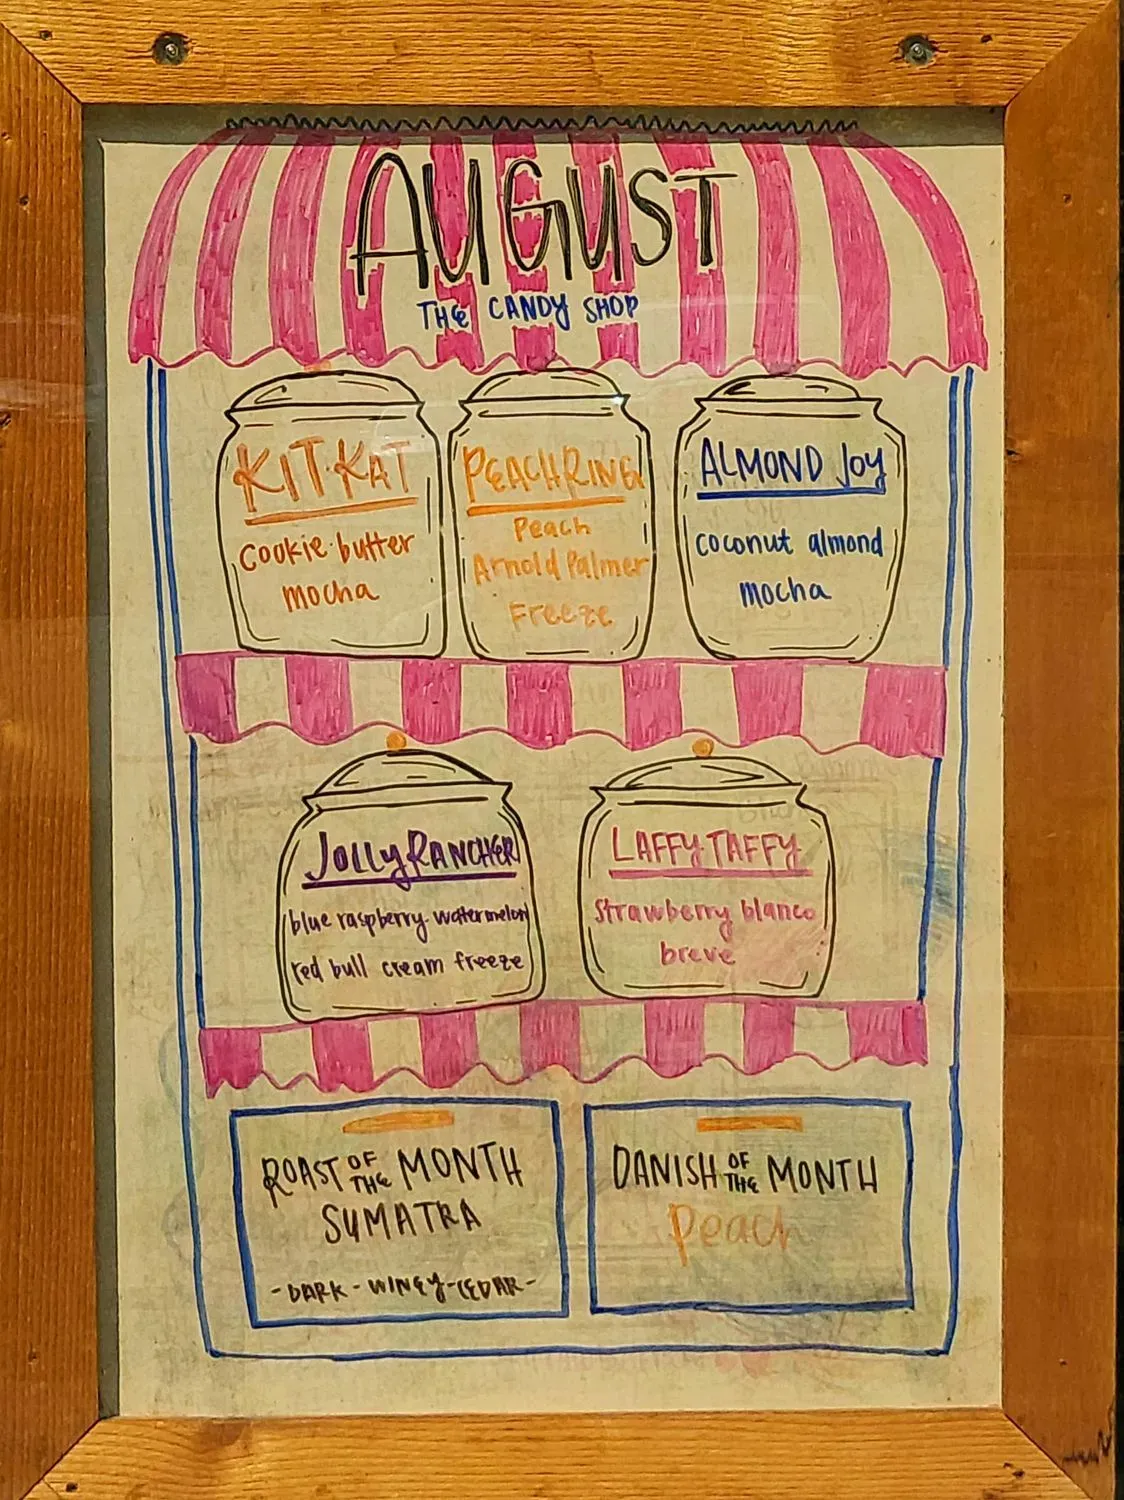 AUGUST
THE CANDY SHOP
KIT·KAT
cookie·butter
mocha
PEACH RING
Peach
Arnold Palmer
Freeze
ALMOND JOY
coconut almond
mocha
JOLLY RANCHER
blue raspberry·watermelon
red bull cream freeze
LAFFY TAFFY
strawberry blanco
breve
ROAST OF THE MONTH
SUMATRA
-DARK-WINEY-CEDAR-
DANISH OF THE MONTH
Peach